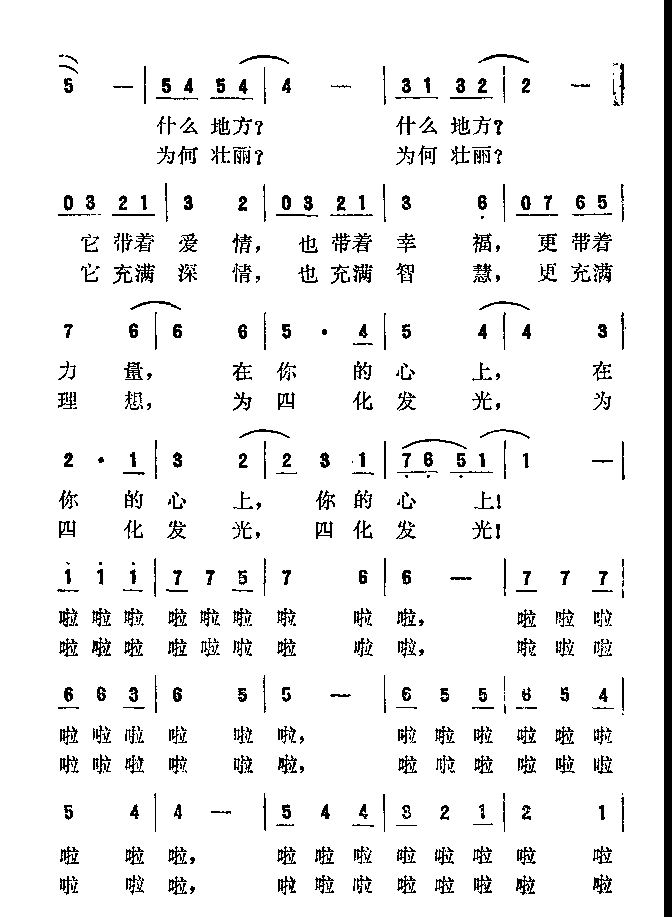 5 — | 54 54 | 4 — | 31 32 | 2 —
什么 地方? 什么 地方?
为何 壮丽? 为何 壮丽?
03 21 | 3 2 | 03 21 | 3 6 | 07 65
它 带着 爱 情, 也 带着 幸 福, 更 带着
它 充满 深 情, 也 充满 智 慧, 更 充满
7 6 | 6 6 | 5 · 4 | 5 4 | 4 3
力 量, 在 你 的 心 上, 在
理 想, 为 四 化 发 光, 为
2 · 1 | 3 2 | 2 3 1 | 76 51 | 1 —
你 的 心 上, 你 的 心 上!
四 化 发 光, 四 化 发 光!
1 1 1 | 7 7 5 | 7 6 | 6 — | 7 7 7
啦 啦 啦 啦 啦 啦 啦 啦 啦, 啦 啦 啦
啦 啦 啦 啦 啦 啦 啦 啦 啦, 啦 啦 啦
6 6 3 | 6 5 | 5 — | 6 5 5 | 6 5 4
啦 啦 啦 啦 啦 啦, 啦 啦 啦 啦 啦 啦
啦 啦 啦 啦 啦 啦, 啦 啦 啦 啦 啦 啦
5 4 | 4 — | 5 4 4 | 3 2 1 | 2 1
啦 啦 啦, 啦 啦 啦 啦 啦 啦 啦 啦
啦 啦 啦, 啦 啦 啦 啦 啦 啦 啦 啦